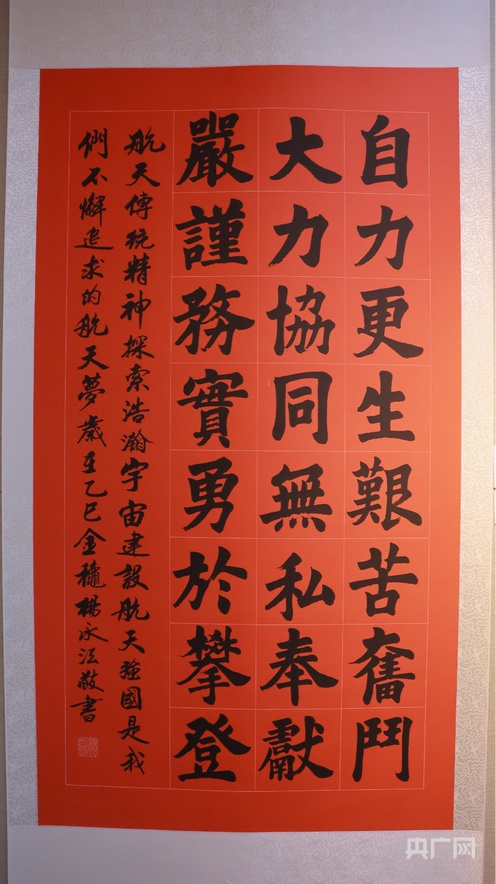 自力更生艱苦奮鬥
大力協同無私奉獻
嚴謹務實勇於攀登
航天傳統精神探索浩瀚宇宙建設航天強國是我
們不懈追求的航天夢歲在乙巳金穗楊永法敬書
央广网